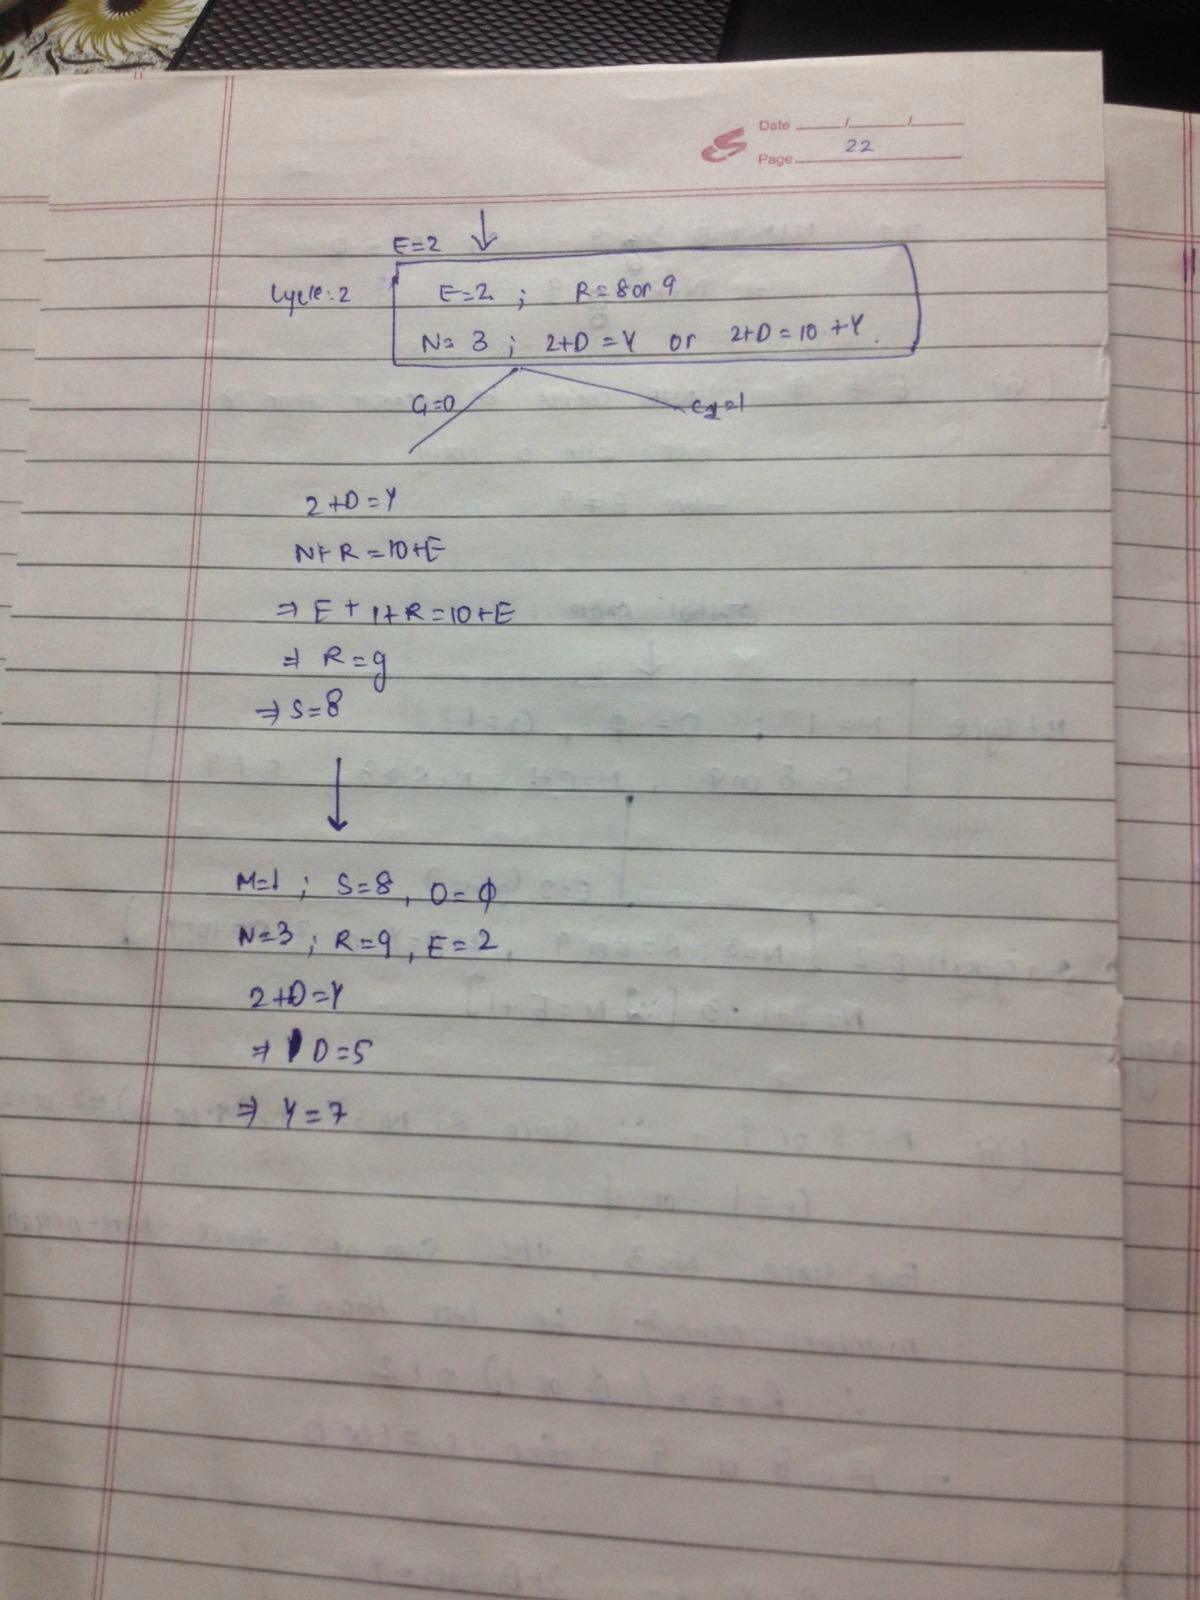 Date / /
Page 22
E=2
Cycle:2
E=2 ; R=8 or 9
N= 3 ; 2+D=Y or 2+D=10+Y.
C1=0
C1=1
2+D=Y
N+R=10+E
⇒ E+1+R=10+E
⇒ R=9
⇒ S=8
M=1 ; S=8, O=ϕ
N=3 ; R=9, E=2
2+D=Y
⇒ D=5
⇒ Y=7